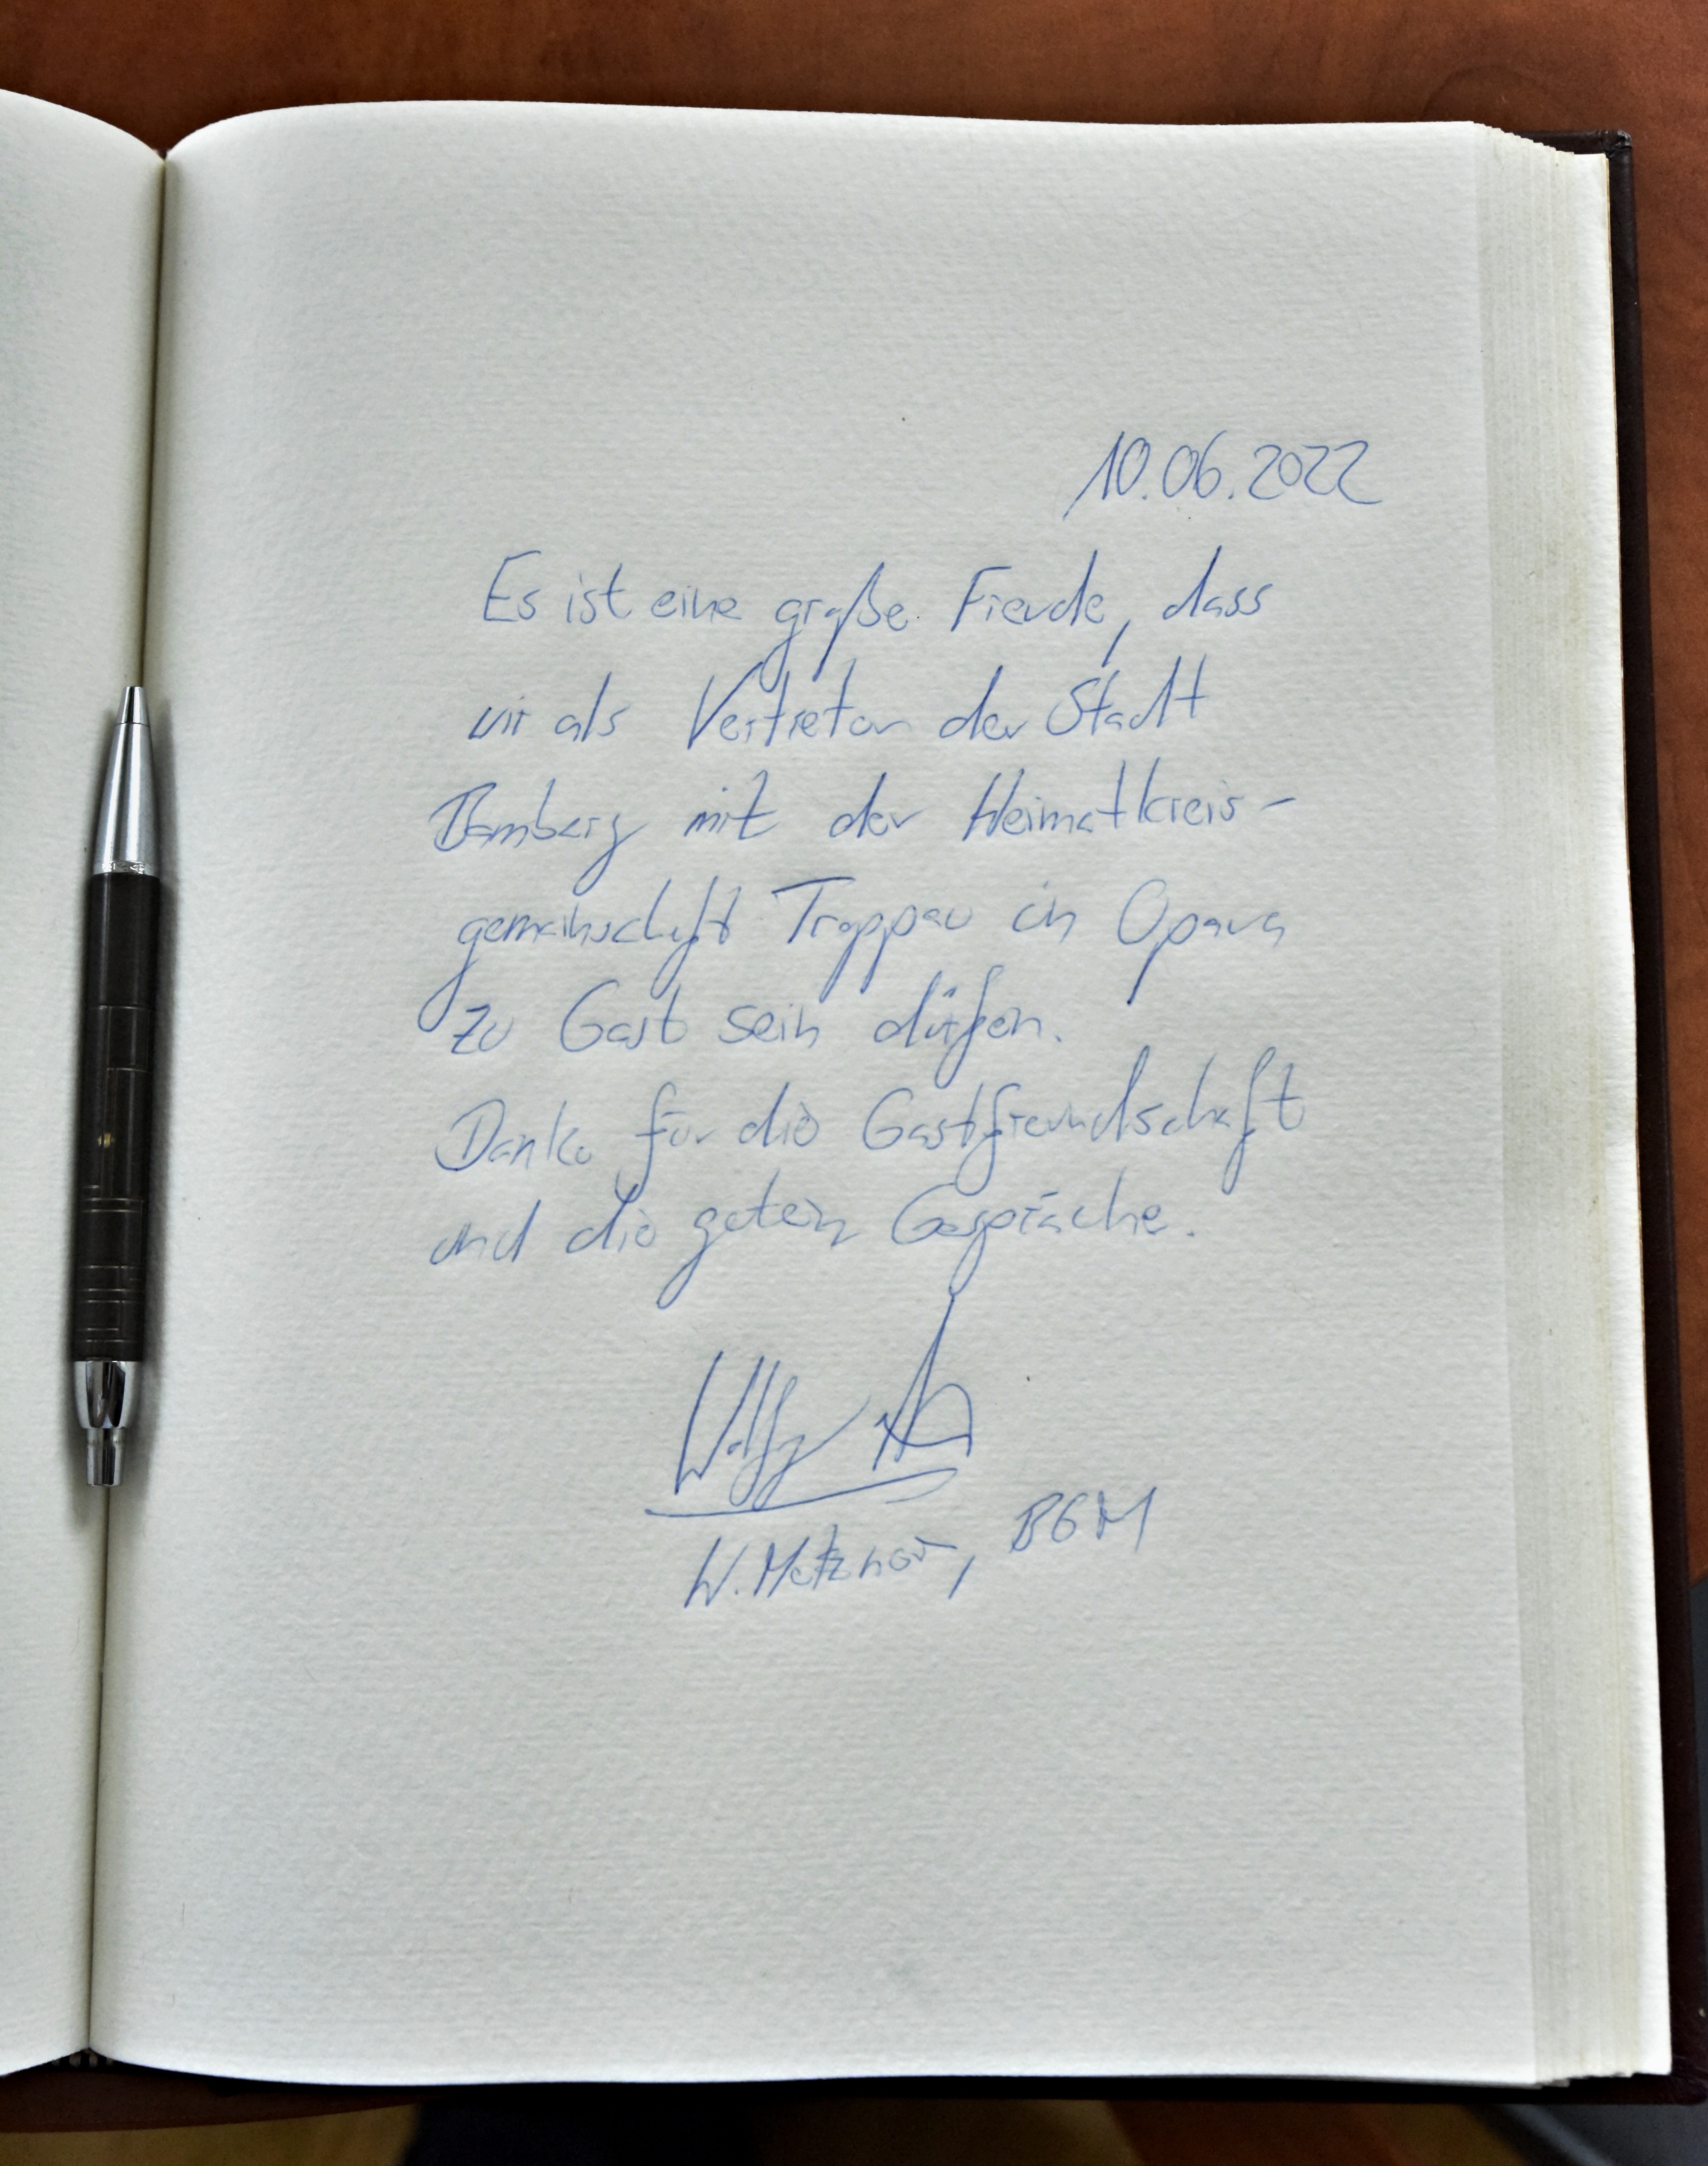 10.06.2022
Es ist eine große Freude, dass
wir als Vertreter der Stadt
Bamberg mit der Heimatkreis-
gemeinschaft Troppau in Opava
zu Gast sein dürfen.
Danke für die Gastfreundschaft
und die guten Gespräche.
W. Metzner, BGM